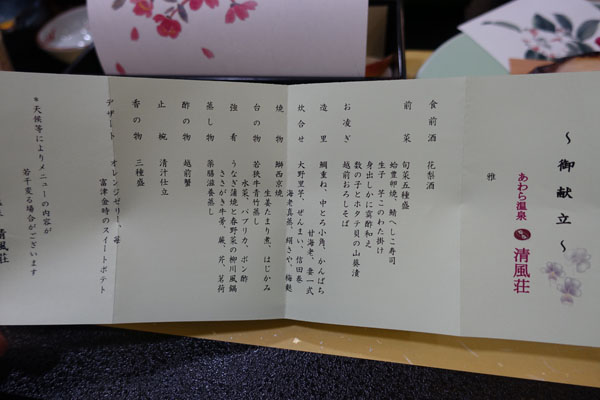 ～御献立～
あわら温泉
清風荘
雅
食前酒 花梨酒
前菜 旬菜五種盛
始豊卵焼、鯖へしこ寿司
生子 芋このわた掛け
身出しかに雲酢和え
数の子とホタテ貝の山葵漬
お凌ぎ 越前おろしそば
造里 鯛重ね、中とろ小角、かんぱち
甘海老、妻一式
炊合せ 大野里芋、ぜんまい、信田巻
海老真蒸、絹さや、梅麩
焼物 鰤西京焼
生姜たまり煮、はじかみ
台の物 若狭牛青竹蒸し
水菜、パプリカ、ポン酢
強肴 うなぎ蒲焼と春野菜の柳川風鍋
ささがき牛蒡、蕨、芹、茗荷
蒸し物 薬膳滋養蒸し
酢の物 越前蟹
止椀 清汁仕立
香の物 三種盛
デザート オレンジゼリー、苺
富津金時のスイートポテト
＊天候等によりメニューの内容が
若干変る場合がございます
清風荘